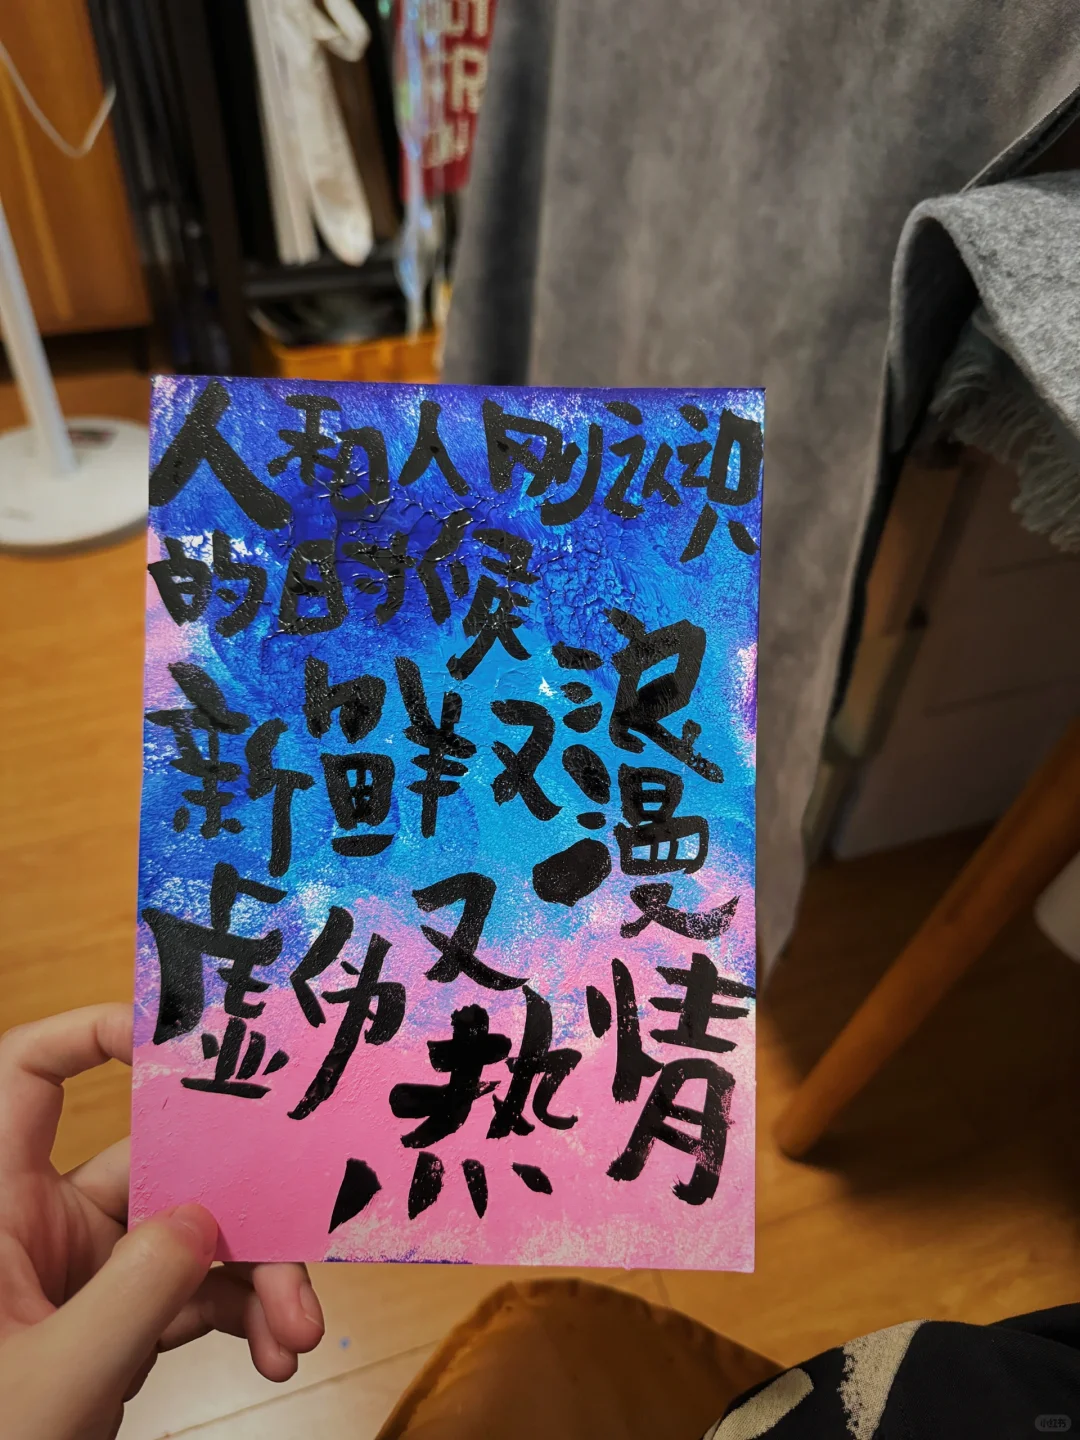 人和人刚认识
的时候
新鲜又浪漫
虚伪又热情
小红书